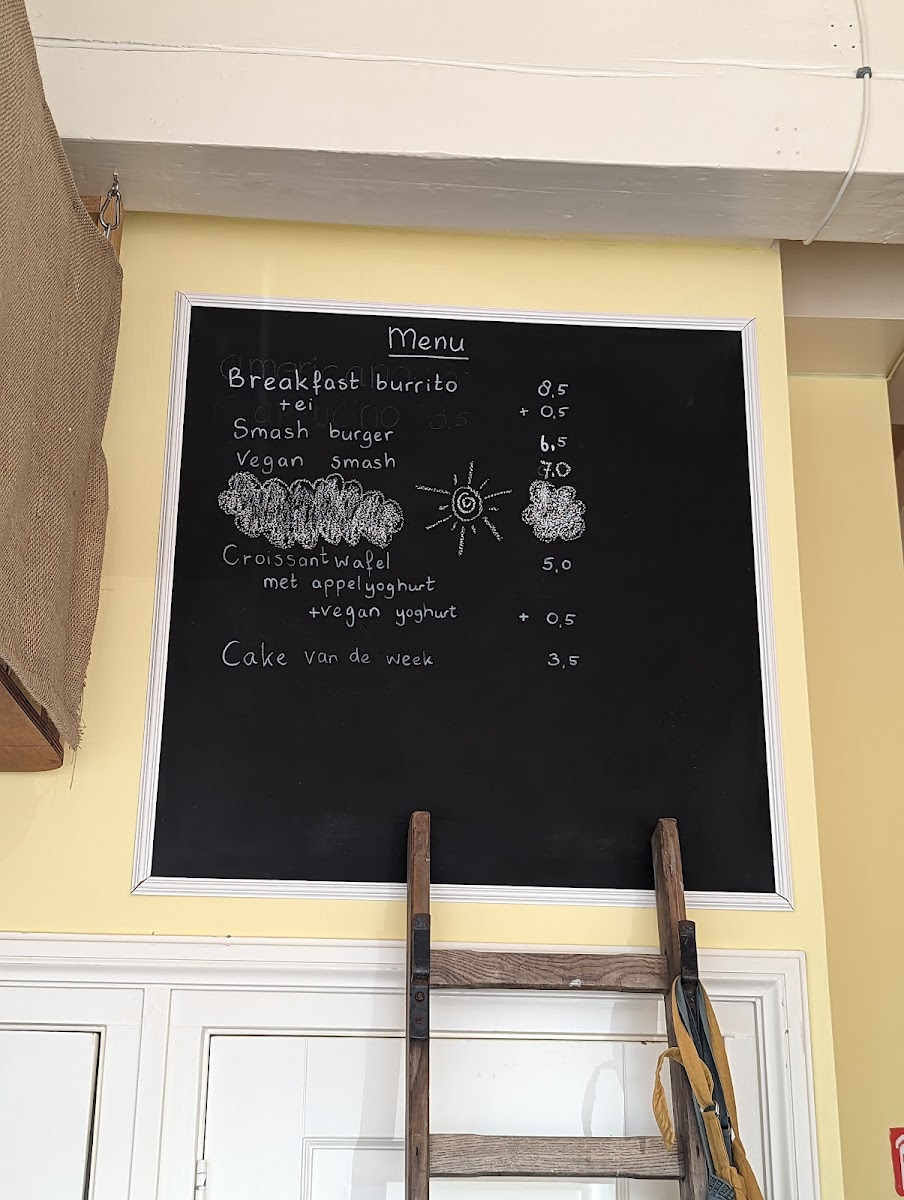 Menu
Breakfast burrito 8,5
+ei + 0,5
Smash burger 6,5
Vegan smash 7,0
Croissantwafel 5,0
met appelyoghurt
+vegan yoghurt + 0,5
Cake van de week 3,5